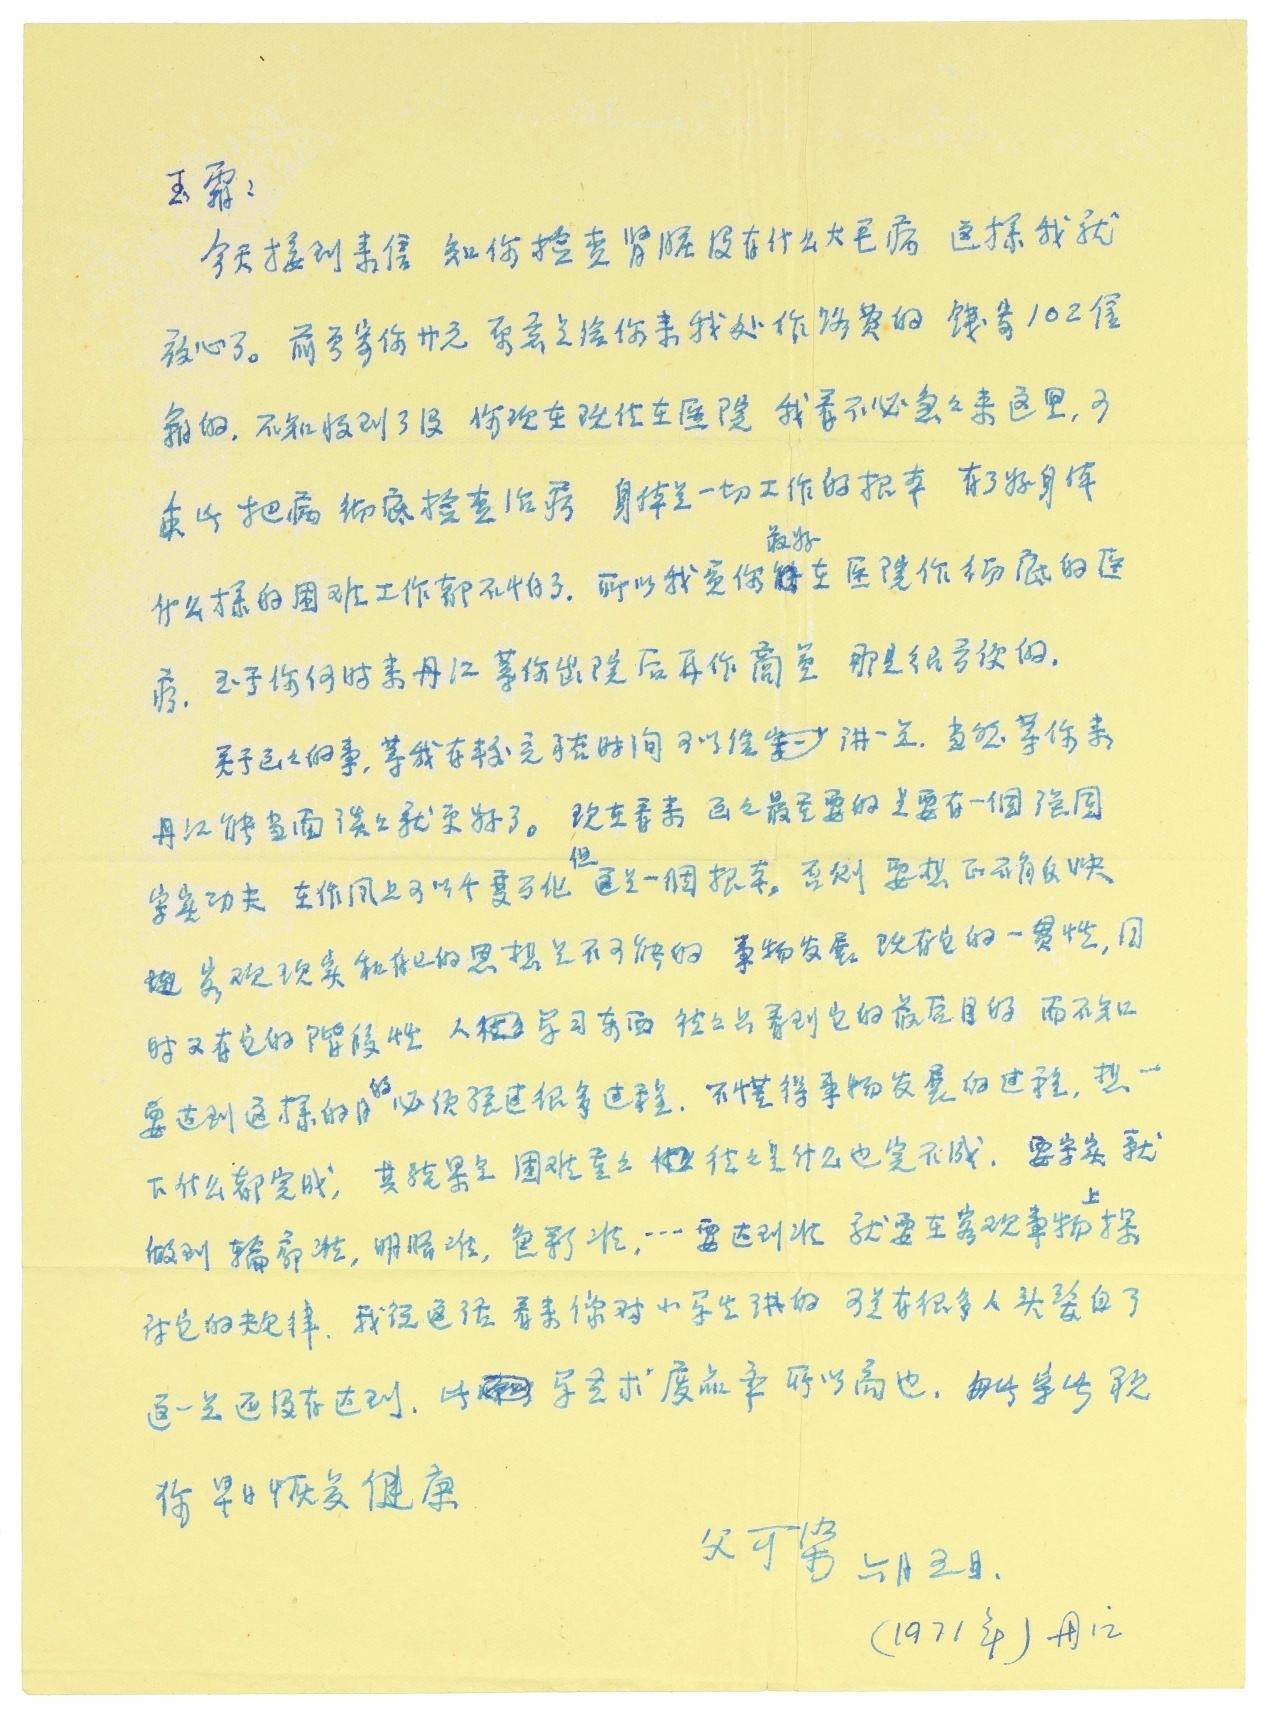 玉霜：
今天接到来信 知你检查肾脏没有什么大毛病 这样我就
放心了。前曾寄你廿元 原意是给你来我处作路费的 钱寄102信
箱的. 不知收到了没 你现在既住在医院 我看不必急々来这里, 可
在此把病彻底检查治疗 身体是一切工作的根本 有了好身体
什么样的困难工作都不怕了. 所以我爱你最好在医院作彻底的医
疗. 至于你何时来丹江 等你出院后再作商量 那是很方便的.
关于画画的事, 等我有较充裕时间可以给你讲一点. 当然等你来
丹江能当面谈々就更好了。 现在看来 画画最重要的是要有一个强固
写实功夫 在作风上可以千变万化 但这是一个根本。否则 要想正确反映
客观现实和自己的思想是不可能的 事物发展 既有它的一贯性, 同
时又有它的阶段性 人 学习东西 往々只看到它的最后目的 而不知
要达到这样的目的必须经过很多过程. 不懂得事物发展的过程, 想一
下什么都完成, 其结果是困难重々 往々是什么也完不成. 要写实 就
做到轮廓准, 明暗准, 色彩准, …要达到准 就要在客观事物上探
讨它的规律. 我说这话 看来像对小学生讲的 可是有很多人头发白了
这一点还没有达到. 此 学艺术 废品率所以高也. 匆此 祝
你早日恢复健康
父可染 六月五日.
(1971年) 丹江